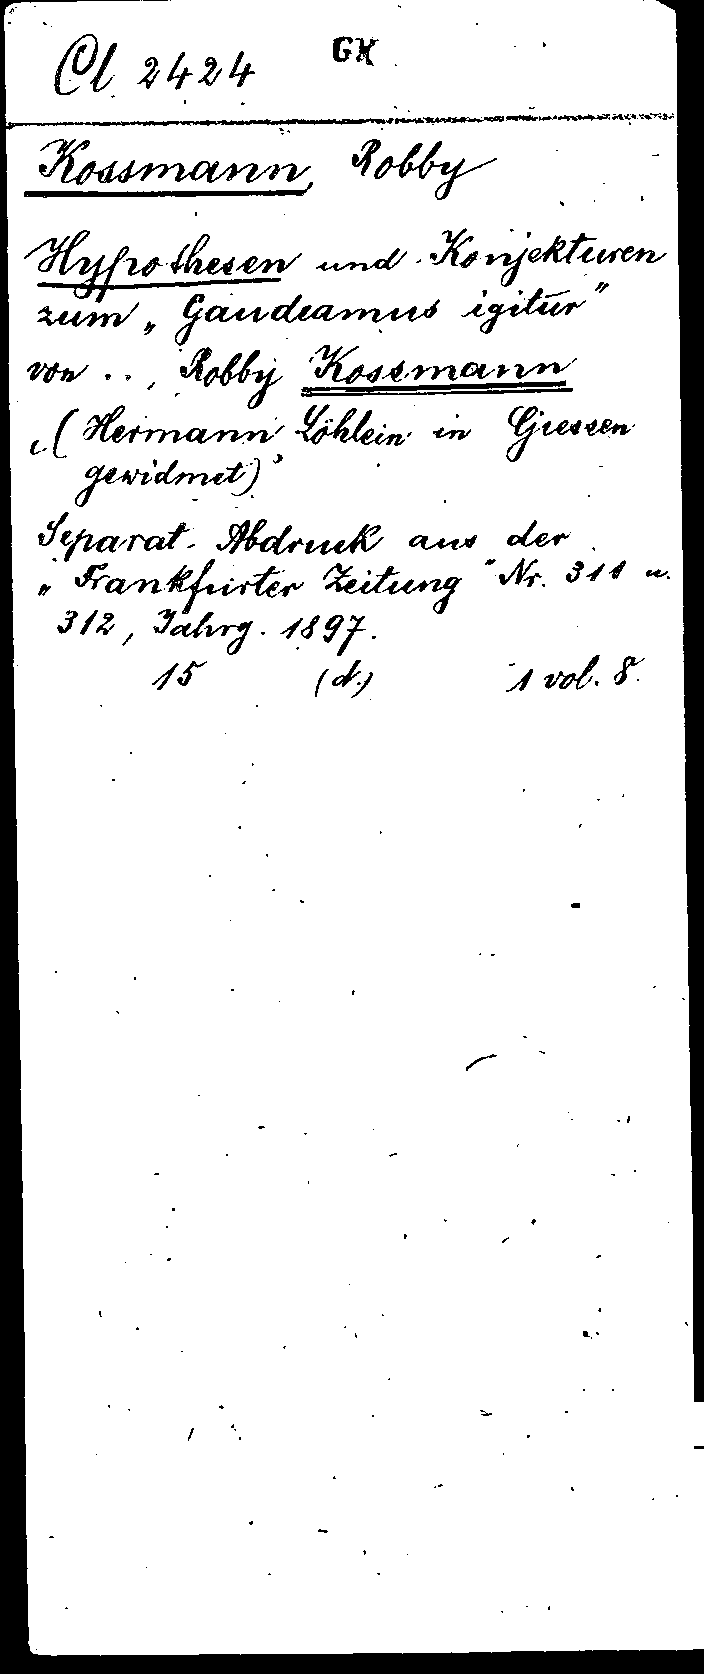 Cl 2424 GK
Kossmann, Robby
Hypothesen und Konjekturen
zum „Gaudeamus igitur"
von .., Robby Kossmann
„(Hermann Löhlein in Giessen
gewidmet)"
Separat-Abdruck aus der
„Frankfurter Zeitung" Nr. 311 u.
312, Jahrg. 1897.
15 (d.) 1 vol. 8.